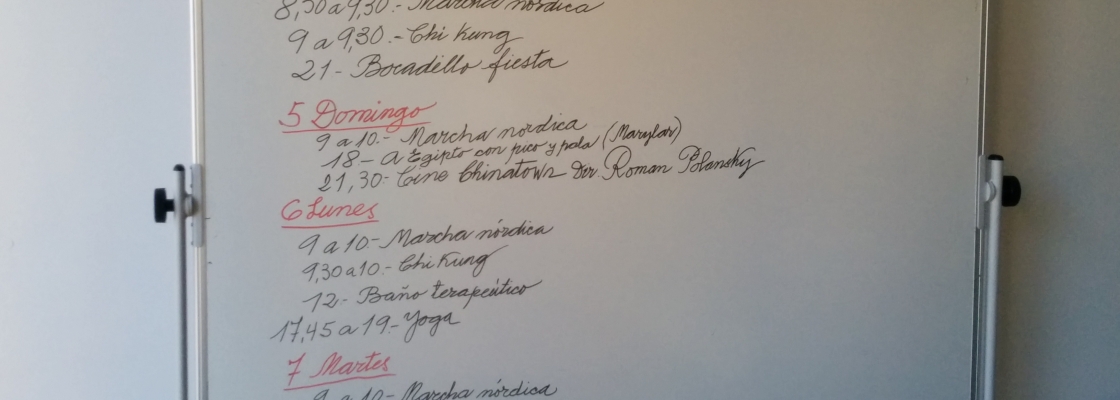 8,30 a 9,30.- Marcha nórdica
9 a 9,30.- Chi Kung
21- Bocadillo fiesta
5 Domingo
9 a 10.- Marcha nordica
18- a Egipto con pico y pala (Marylar)
21,30- Cine Chinatown Dir. Roman Polansky
6 Lunes
9 a 10.- Marcha nórdica
9,30 a 10.- Chi Kung
12- Baño terapeútico
17,45 a 19- Yoga
7 Martes
9 a 10- Marcha nórdica